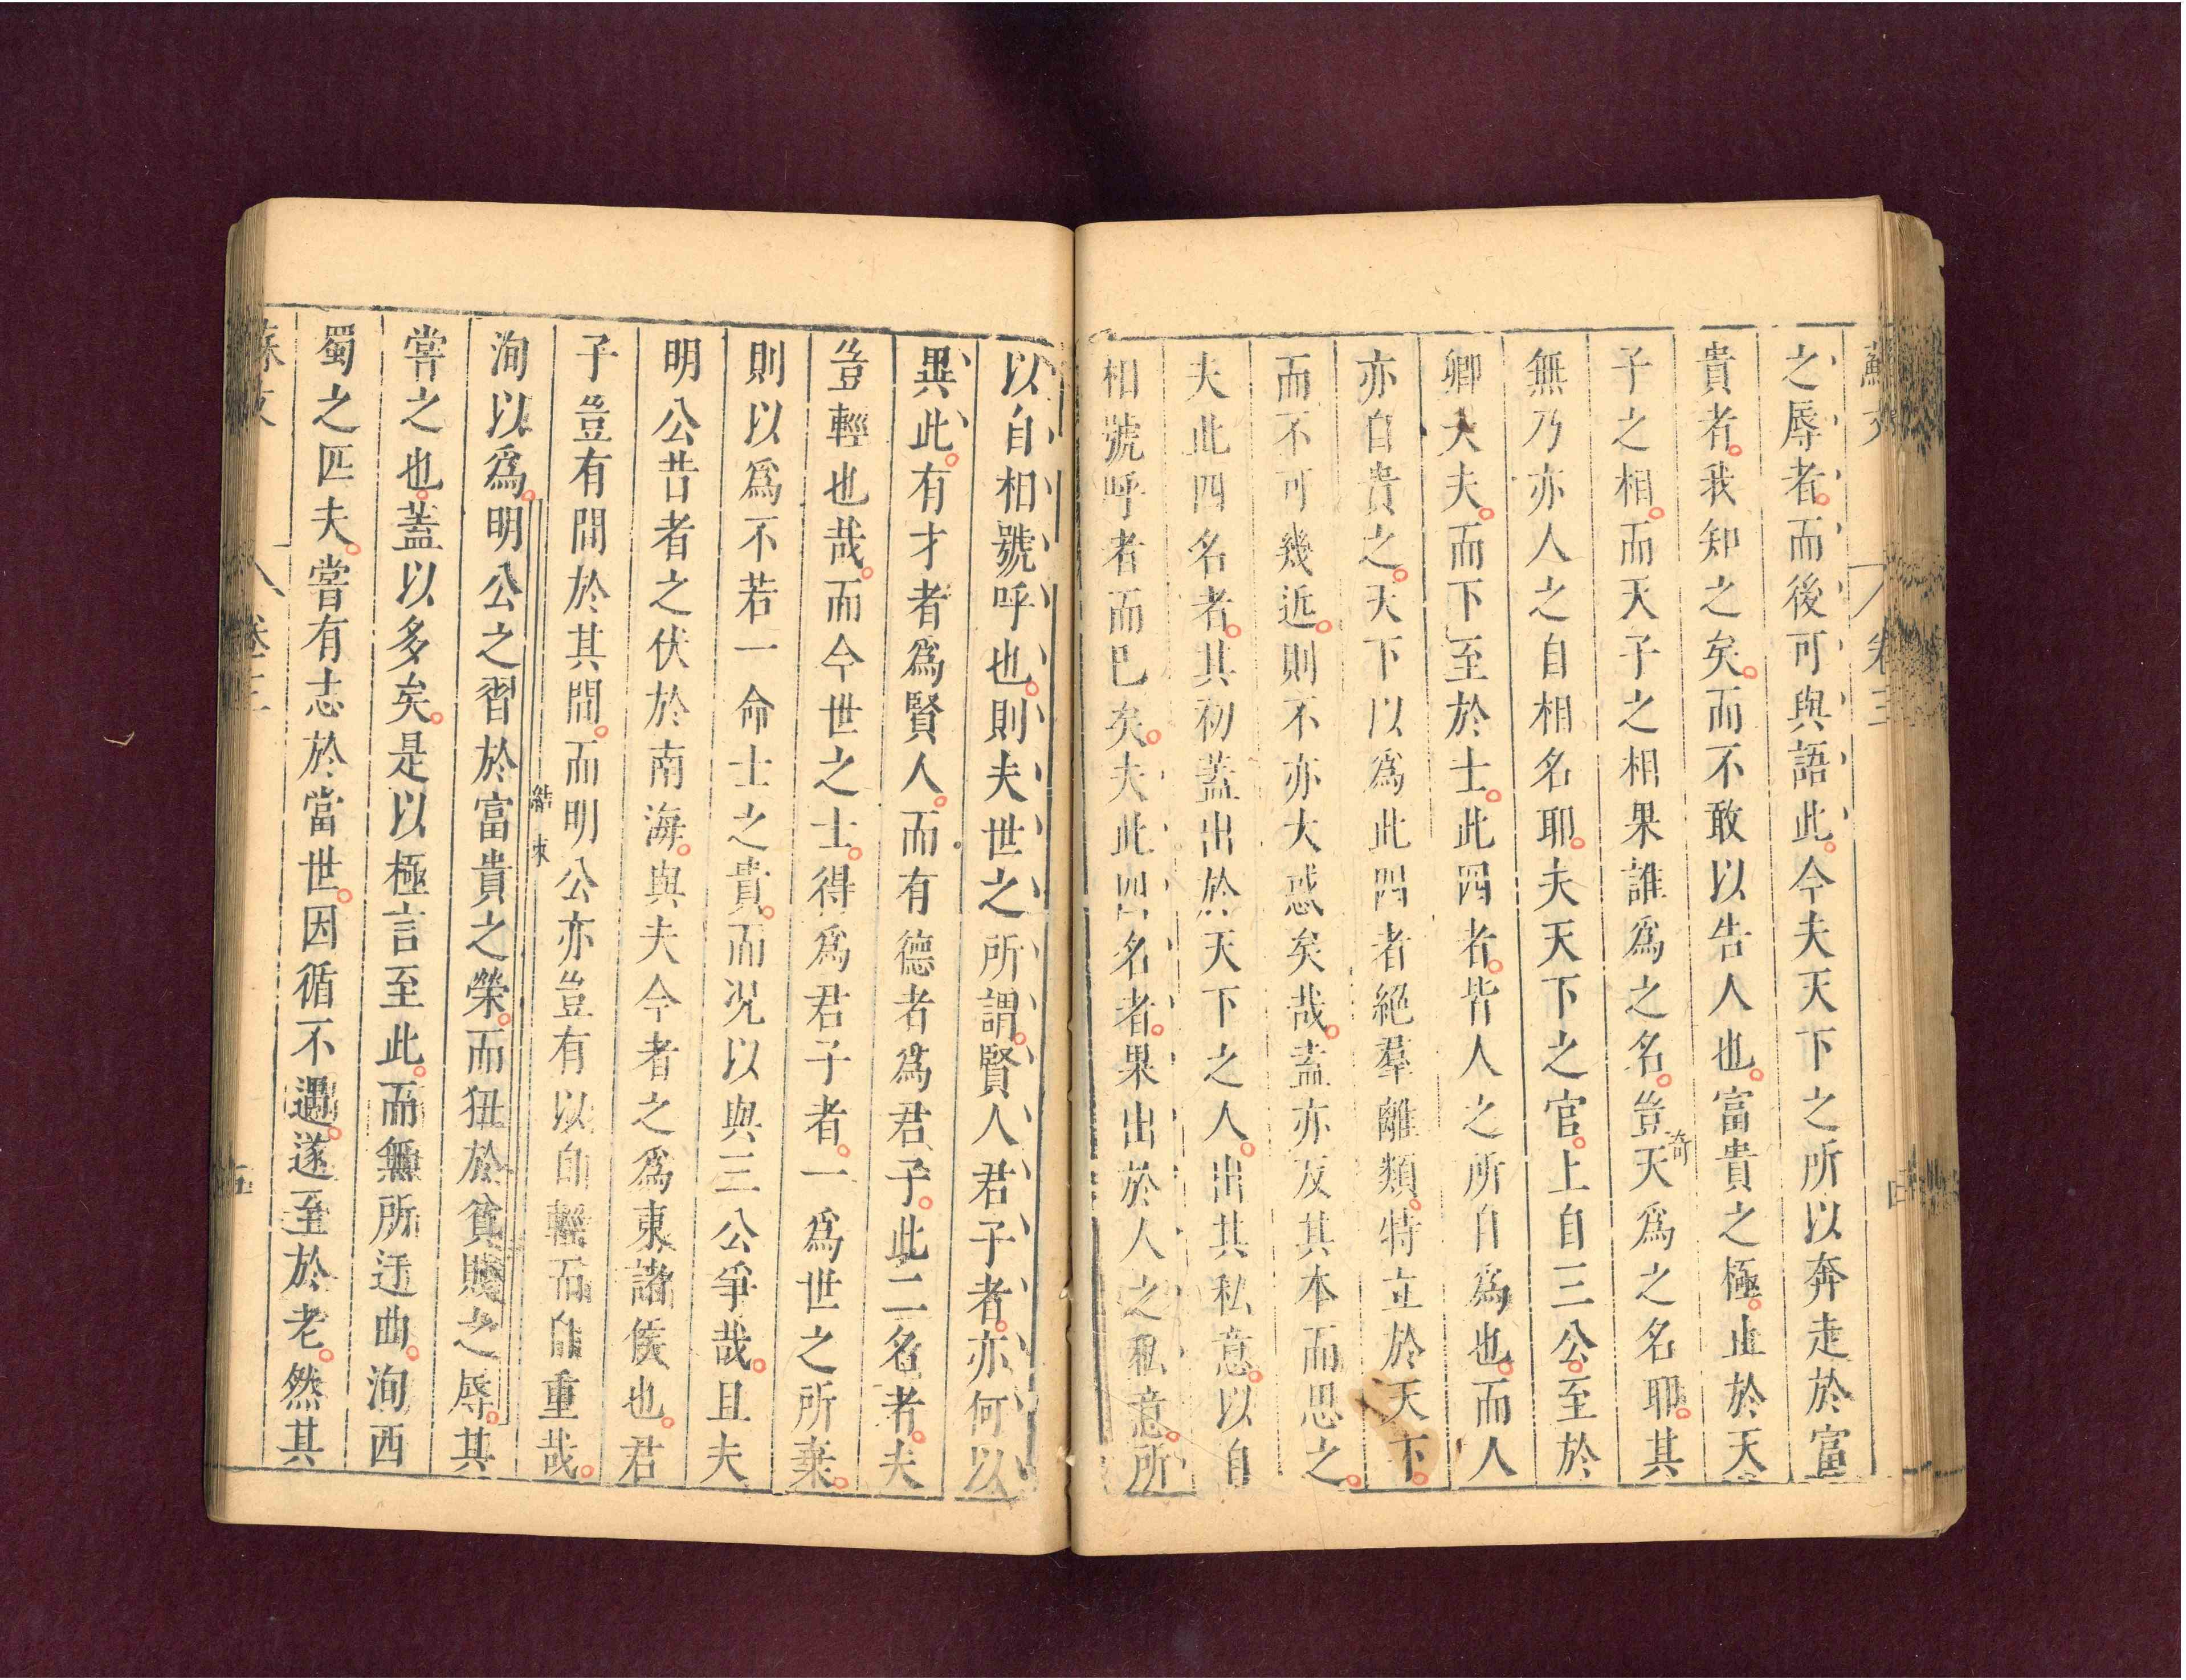 蘇文
卷三
四
之辱者。而後可與語此。今夫天下之所以奔走於富
貴者。我知之矣。而不敢以告人也。富貴之極。止於天
子之相。而天子之相果誰爲之名。豈天爲之名耶。其
奇
無乃亦人之自相名耶。夫天下之官。上自三公。至於
卿大夫。而下至於士。此四者。皆人之所自爲也。而人
亦自貴之。天下以爲此四者絕羣離類。特立於天下。
而不可幾近。則不亦大惑矣哉。盖亦反其本而思之。
夫此四名者。其初蓋出於天下之人。出其私意。以自
相號呼者而已矣。夫此四名者。果出於人之私意。所
以自相號呼也。則夫世之所謂。賢人君子者。亦何以
異此。有才者爲賢人。而有德者爲君子。此二名者。夫
豈輕也哉。而今世之士。得爲君子者。一爲世之所棄。
則以爲不若一命士之貴。而况以與三公爭哉。且夫
明公昔者之伏於南海。與夫今者之爲東諸侯也。君
子豈有間於其間。而明公亦豈有以自輕而自重哉。
結束
洵以爲。明公之習於富貴之榮。而狃於貧賤之辱。其
嘗之也。蓋以多矣。是以極言至此。而無所迂曲。洵西
蜀之匹夫。嘗有志於當世。因循不遇。遂至於老。然其
蘇文
卷三
五